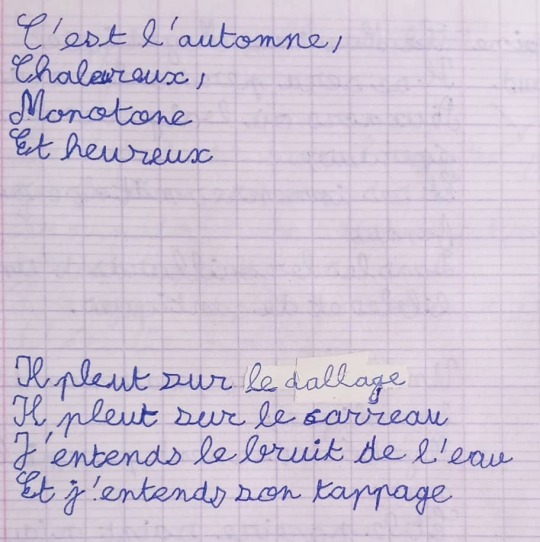 C'est l'automne,
Chaleureux,
Monotone
Et heureux
Il pleut sur le dallage
Il pleut sur le carreau
J'entends le bruit de l'eau
Et j'entends son tappage